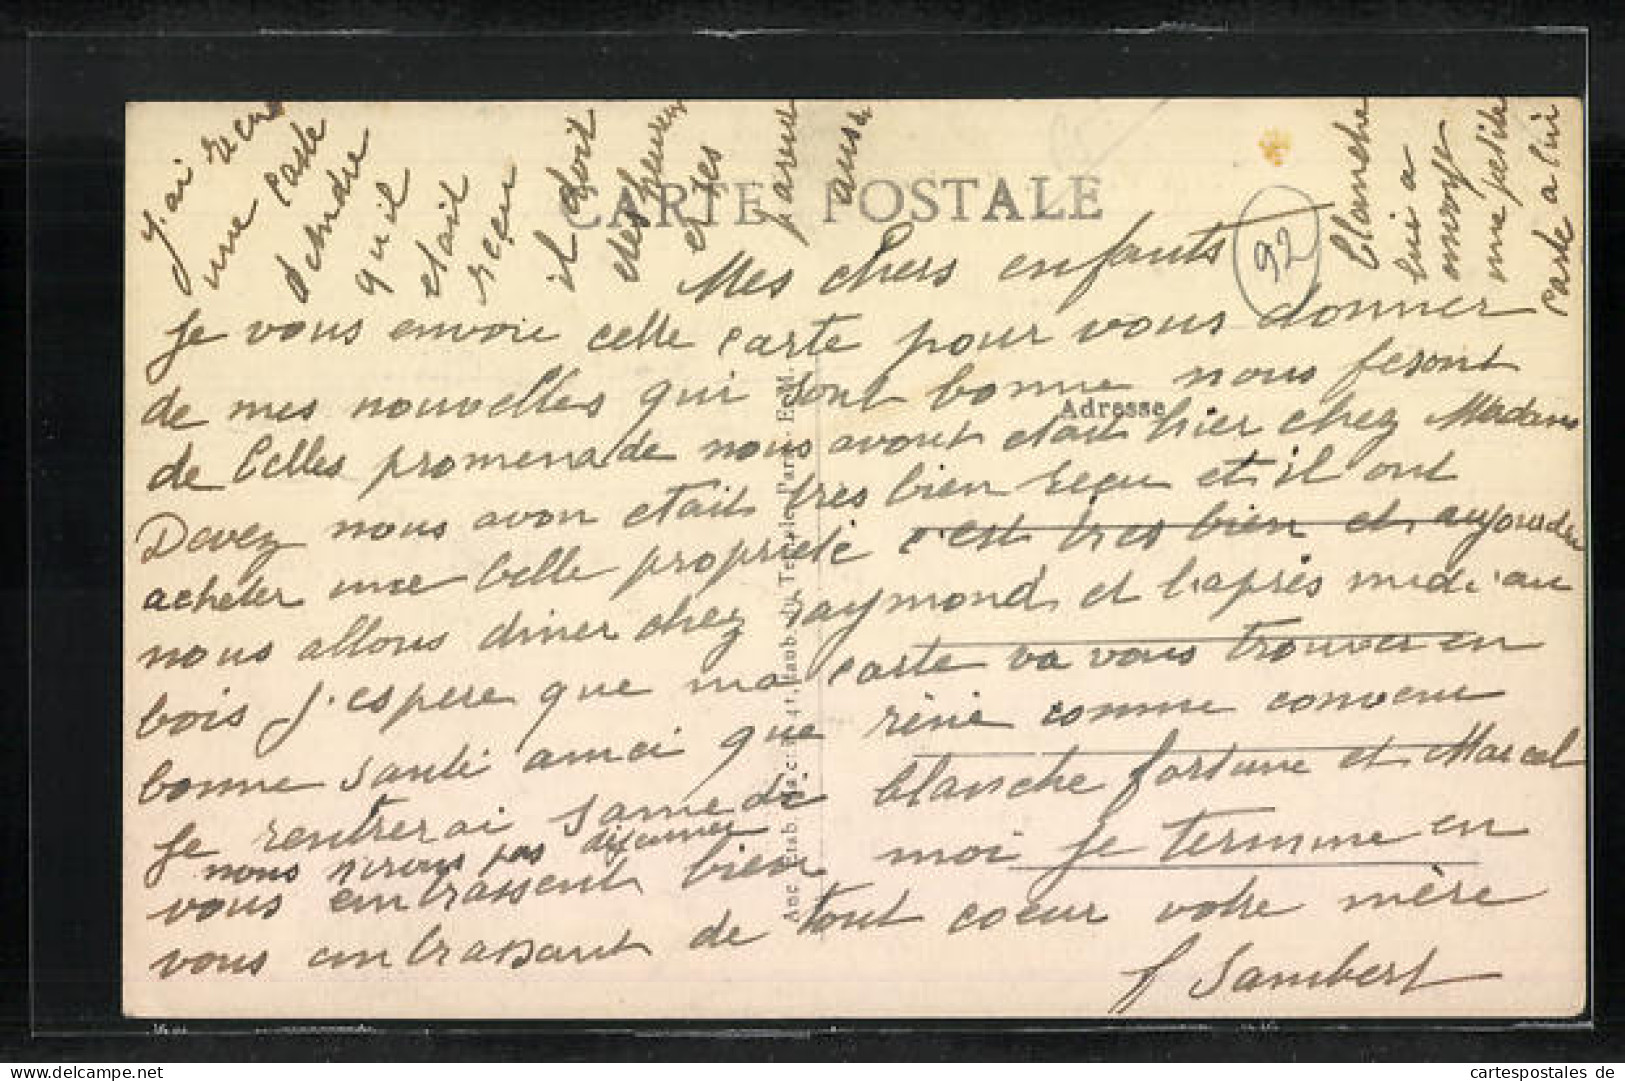 CARTE POSTALE
Adresse
92
Mes chers enfants
Je vous envoie cette carte pour vous donner
de mes nouvelles qui sont bonne nous fesont
de belles promenade nous avont etait hier chez Madame
Devez nous avon etait tres bien reçu et il ont
acheter une belle propriete c'est tres bien et aujourdui
nous allons diner chez raymond et l'après midi au
bois j'espere que ma carte va vous trouver en
bonne santé ainci que réné comme convenu
Je rentrerai samedi blanche fortune et Marcel
nous n'irons pas déjeuner
vous embrassent bien moi je termine en
vous embrassant de tout coeur votre mère
J Sambert
J'ai recu
une carte
d'Andre
qu'il
etait
reçu
il doit
etre heureux
et ses
parents
aussi
Blanche
lui a
envoye
une petite
carte a lui
cartespostales.com
cartespostales.de